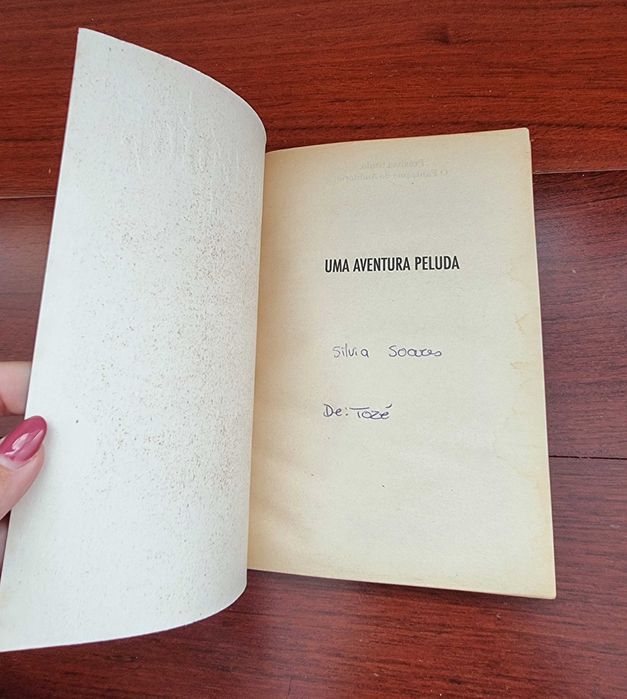 UMA AVENTURA PELUDA
Silvia Soares
De: Tozé